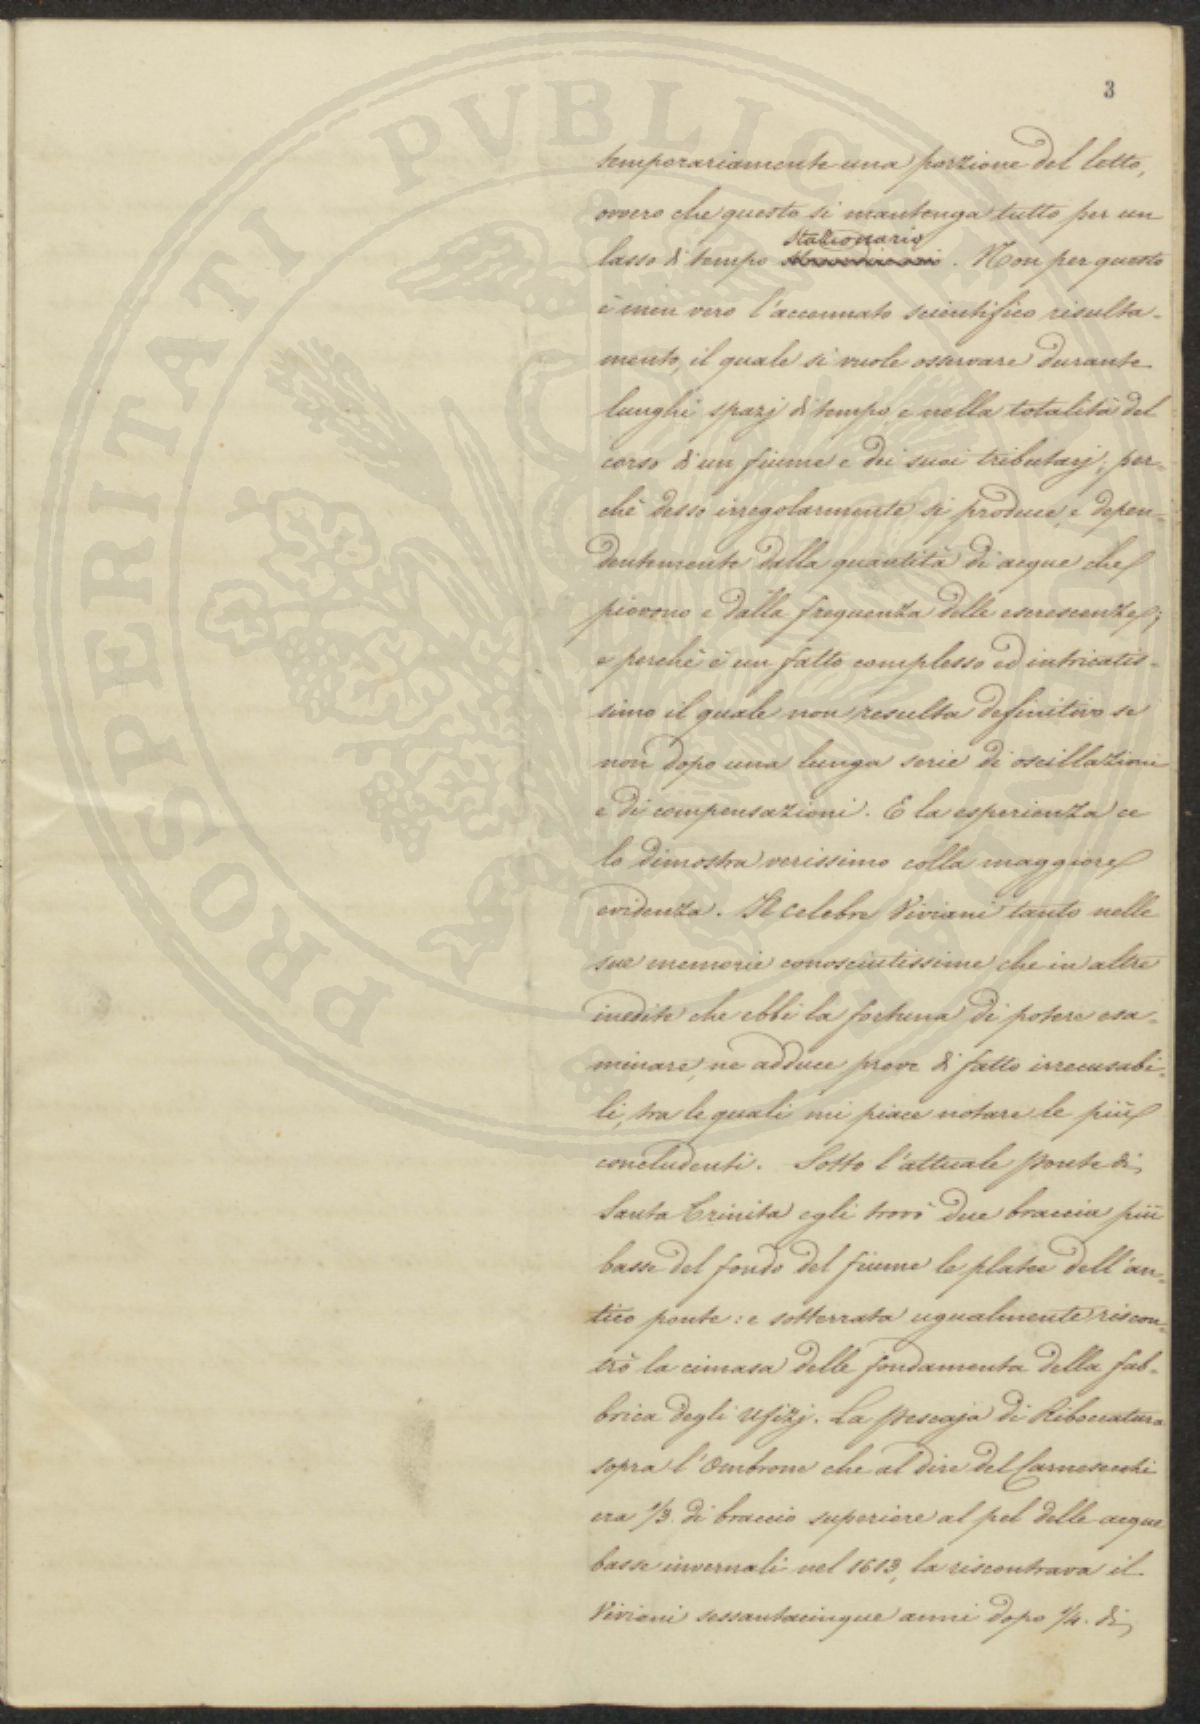 3
temporariamente una porzione del letto,
ovvero che questo si mantenga tutto per un
stazionario
lasso di tempo . Non per questo
è men vero l'accennato scientifico risulta-
mento, il quale si vuole osservare durante
lunghi spazj di tempo, e nella totalità del
corso di un fiume e dei suoi tributarj; per-
chè desso irregolarmente si produce, e depen-
dentemente dalla quantità di acque che
piovono e dalla frequenza delle escrescenze;
e perchè è un fatto complesso ed intricatis-
simo il quale non resulta definitivo se
non dopo una lunga serie di oscillazioni
e di compensazioni. E la esperienza ce
lo dimostra verissimo colla maggiore
evidenza. Il celebre Viviani tanto nelle
sue memorie conosciutissime che in altre
inedite che ebbi la fortuna di potere esa-
minare, ne adduce prove di fatto irrecusabi-
li, tra le quali mi piace notare le più
concludenti. Sotto l'attuale Ponte di
Santa Trinita egli trovò due braccia più
basse del fondo del fiume le platee dell'an-
tico ponte: e sotterrata ugualmente riscon-
trò la cimasa delle fondamenta della fab-
brica degli Ufizj. La Pescaja di Riboccatura
sopra l'Ombrone che al dire del Carnesecchi
era 1/3 di braccio superiore al pel delle acque
basse invernali nel 1613, la riscontrava il
Viviani sessantacinque anni dopo 1/4 di
PROSPERITATI PVBLICAE